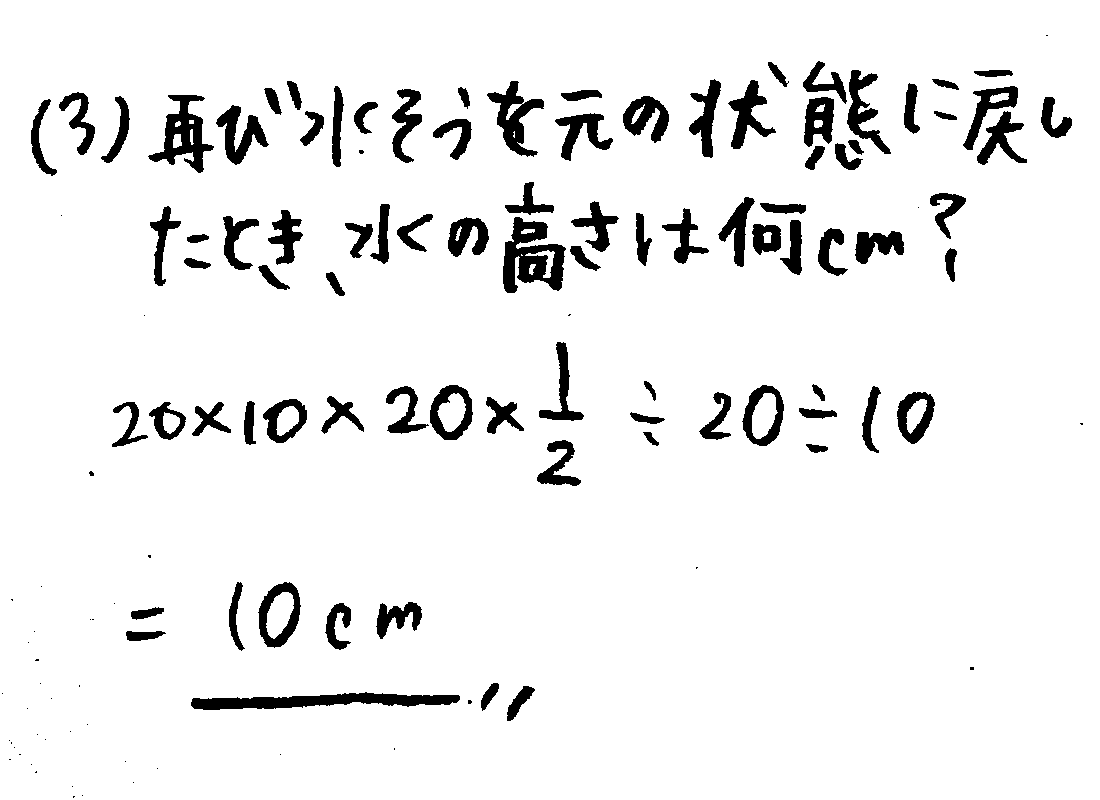 (3) 再び水そうを元の状態に戻し
たとき、水の高さは何cm?
20×10×20×1/2÷20÷10
= 10cm